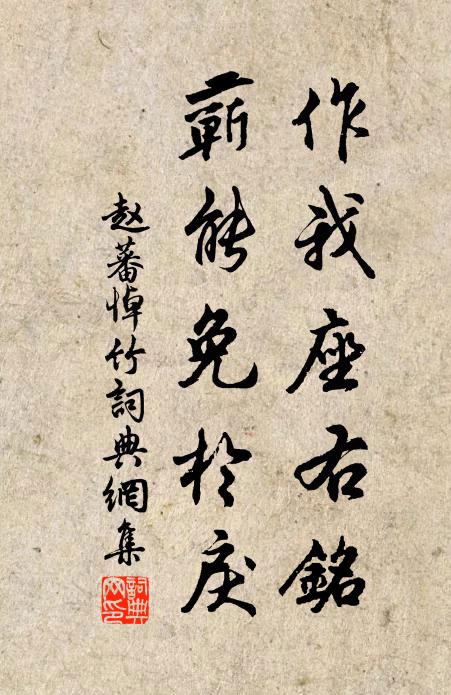 作我座右銘
蘄能免於戾
赵蕃悼竹詞典網集
詞典网印